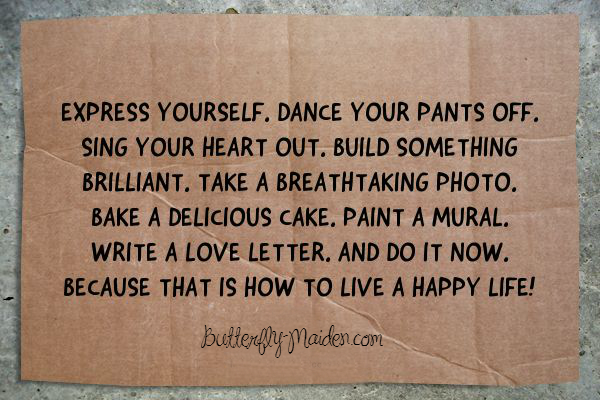 EXPRESS YOURSELF. DANCE YOUR PANTS OFF.
SING YOUR HEART OUT. BUILD SOMETHING
BRILLIANT. TAKE A BREATHTAKING PHOTO.
BAKE A DELICIOUS CAKE. PAINT A MURAL.
WRITE A LOVE LETTER. AND DO IT NOW.
BECAUSE THAT IS HOW TO LIVE A HAPPY LIFE!
Butterfly-Maiden.com